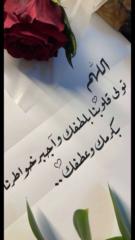 اللهم
تولى قلوبنا بلطفك وأجبر خواطرنا
بكرمك وعطفك ..